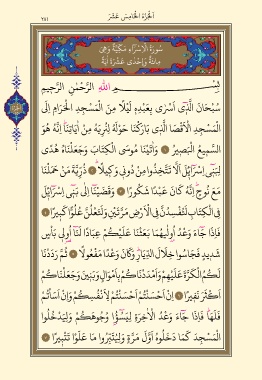 الجزء الخامس عشر
٢٨١
سورة الاسراء مكية وهي
مائة واحدى عشرة اية
بسم الله الرحمن الرحيم
سبحان الذى اسرى بعبده ليلا من المسجد الحرام الى
المسجد الاقصا الذى باركنا حوله لنريه من اياتنا انه هو
السميع البصير واتينا موسى الكتاب وجعلناه هدى
لبنى اسرائل الا تتخذوا من دونى وكيلا ذرية من حملنا
مع نوح انه كان عبدا شكورا وقضينا الى بنى اسرائل
فى الكتاب لتفسدن فى الارض مرتين ولتعلن علوا كبيرا
فاذا جاء وعد اوليهما بعثنا عليكم عبادا لنا اولى باس
شديد فجاسوا خلال الديار وكان وعدا مفعولا ثم رددنا
لكم الكرة عليهم وامددناكم باموال وبنين وجعلناكم
اكثر نفيرا ان احسنتم احسنتم لانفسكم وان اساتم
فلها فاذا جاء وعد الاخرة ليسؤا وجوهكم وليدخلوا
المسجد كما دخلوه اول مرة وليتبروا ما علوا تتبيرا